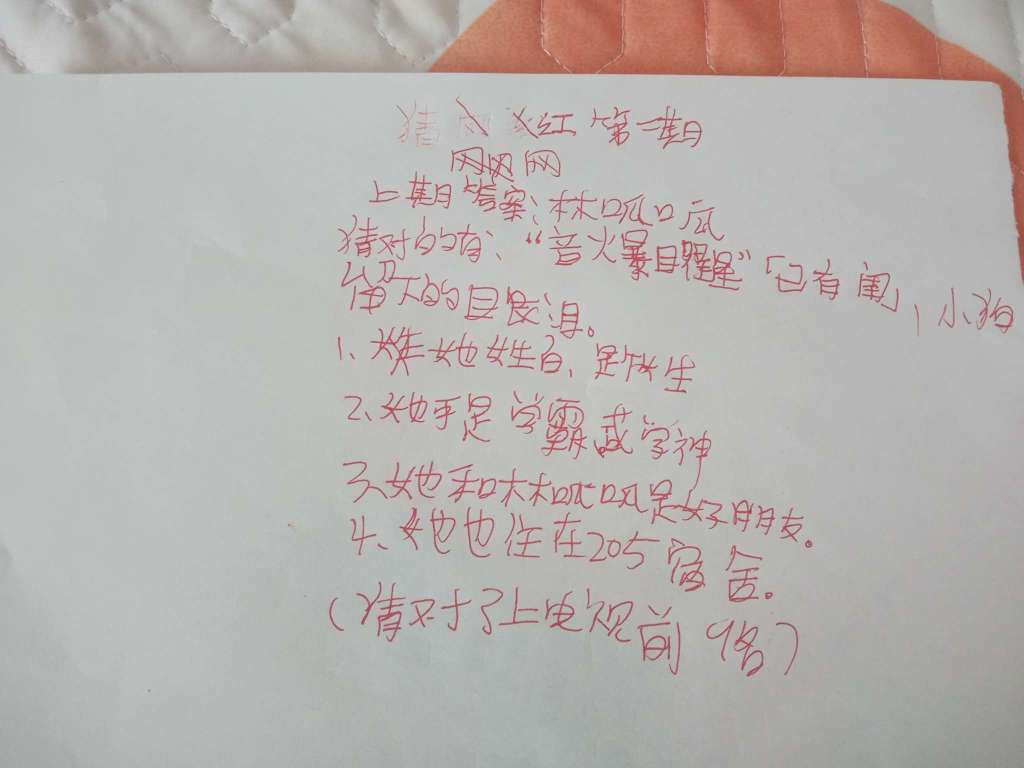 猜网红第一期
网网
上期答案:林呱呱
猜对的有:“音火暴目醒星”「已有闺」,小狗
留下的目度泪。
1、她姓白,是女生
2、她乎是学霸或学神
3、她和林呱呱是好朋友。
4、她也住在205宿舍。
(猜对了上电视前9名)